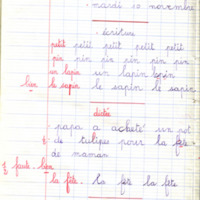 mardi 10 novembre
écriture
petit petit petit petit petit
pin pin pin pin pin pin
un lapin un lapin lapin
lien le sapin le sapin le sapin
dictée
papa a acheté un pot
de tulipes pour la fête
de maman
faute bien
la fête. la fête la fête